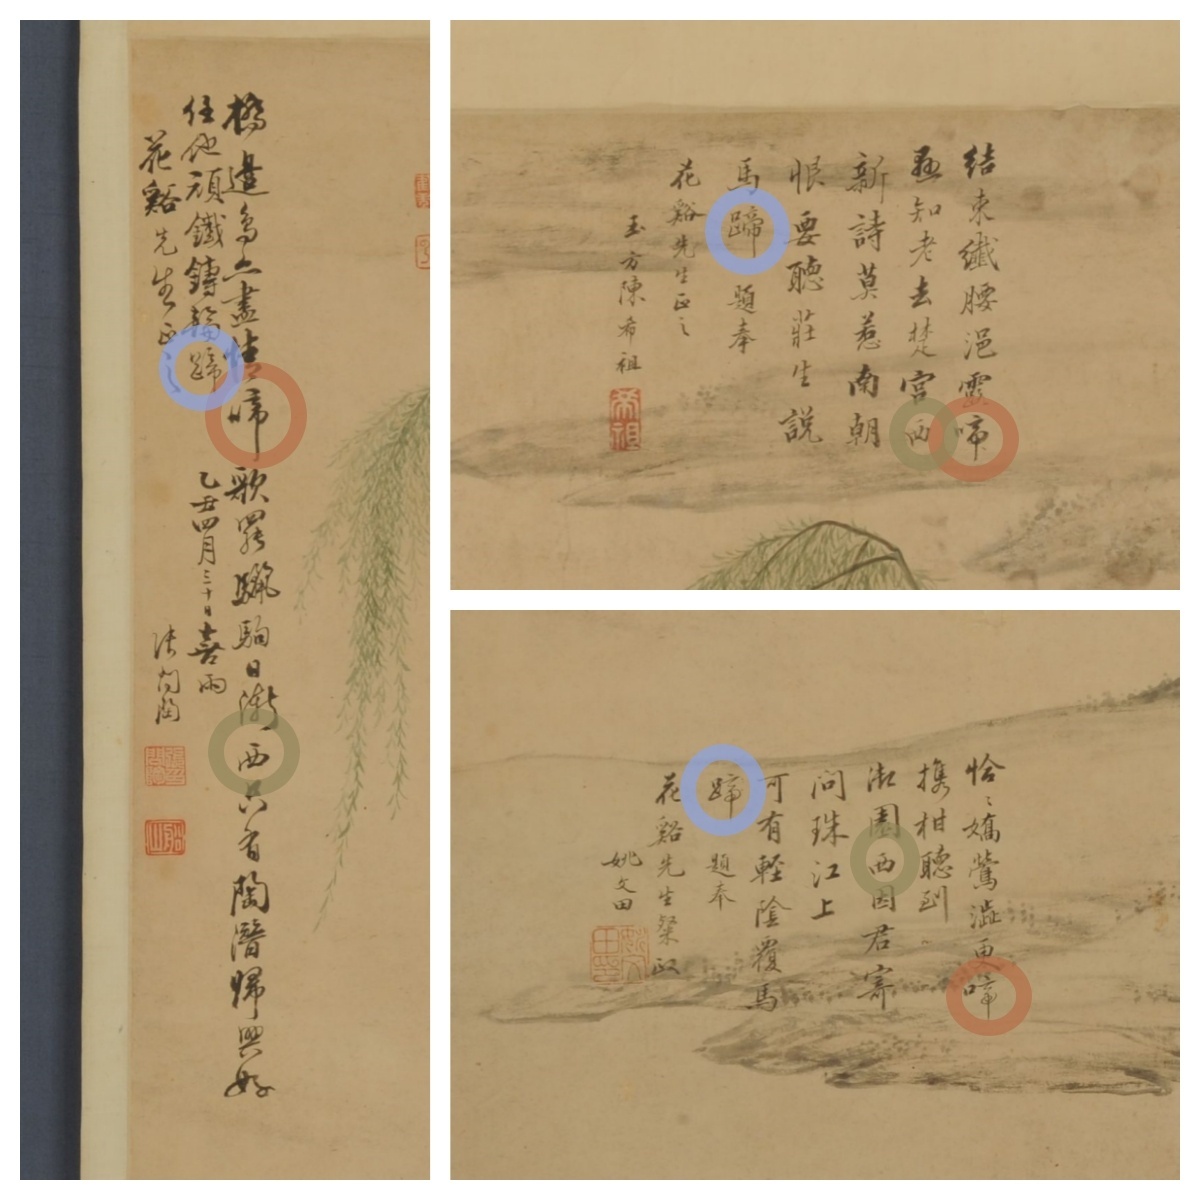 橋邊鳥亦盡情啼歌罷驪駒日漸西只有陶潛歸興好
任他頑鐵鑄輪蹄 乙丑四月三十日喜雨
花谿先生正之 張問陶
船山
結束纖腰浥露啼
懸知老去楚宮西
新詩莫惹南朝
恨要聽莊生說
馬蹄 題奉
花谿先生正之
玉方陳希祖
希祖
恰〻嬌鶯澁更啼
攜柑聽到
園西因君寄
問珠江上
可有輕陰覆馬
蹄 題奉
花谿先生粲政
姚文田